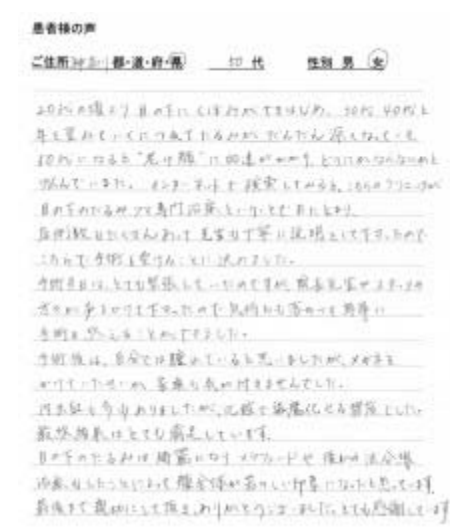 患者様の声
ご住所 神奈川 都・道・府・県 50代 性別 男 女
20代の頃より目の下にくぼみができはじめ、30代、40代と
年を重ねていくにつれてたるみがだんだん深くなっていき
50代になると"老け顔"に加速がかかり、どうにかならないかと
悩んでいました。インターネットで検索してみると、こちらのクリニックが
目の下のたるみ 専門 という
症例数もたくさんあって先生も丁寧に説明して下さったので
こちらで手術を受けることに決めました。
手術当日は、とても緊張していたのですが、院長先生やスタッフの
方々が声をかけて下さったので気持ちも落ちつき無事に
手術を することができました。
手術後は、自分では腫れていると思いましたが、メガネを
かけていたせいか、家族も気が付きませんでした。
内出血も多少ありましたが、
最終結果はとても満足しています。
目の下のたるみは綺麗になり
したことによって顔全体が若々しい印象になったと思っています。
最後まで親切にして頂き、ありがとうございました。とても感謝しています